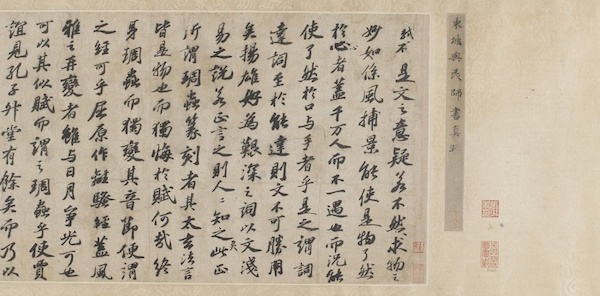 東坡與民師書真
是文之意疑若不然求物之
妙如係風捕景能使是物了然
於心者蓋千万人而不一遇也而況能
使了然於口与手者乎是之謂詞
達詞至於能達則文不可勝用
矣揚雄好為艱深之詞以文淺
易之說若正言之則人人知之矣此正
所謂琱蟲篆刻者其太玄法言
皆是物也而獨悔於賦何哉終
身琱蟲而獨變其音節便謂
之經可乎屈原作離騷經蓋風
雅之再變者雖与日月爭光可也
可以其似賦而謂之琱蟲乎使賈
誼見孔子升堂有餘矣而乃以